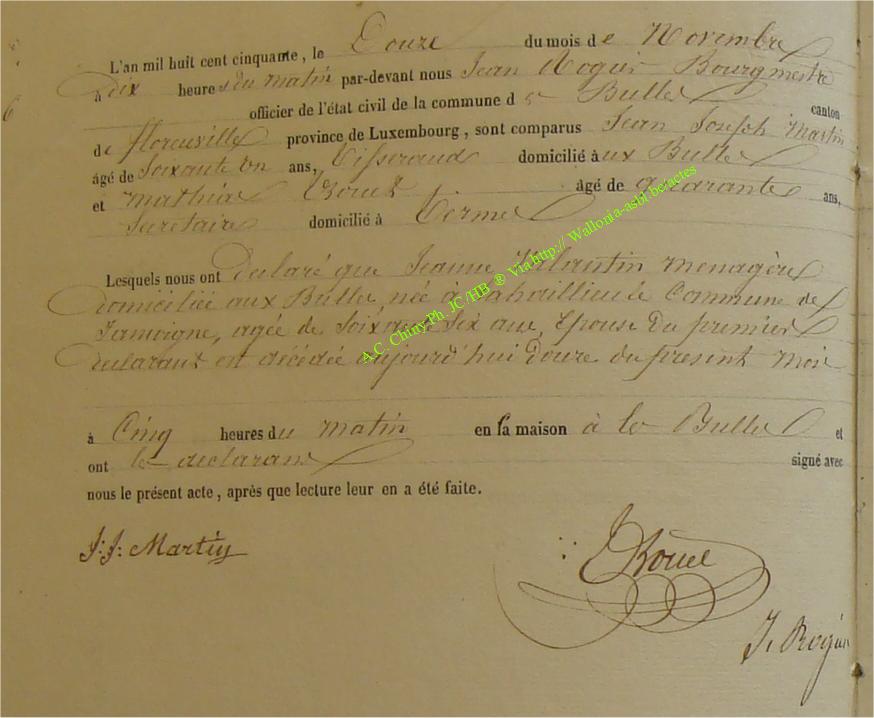 L'an mil huit cent cinquante, le Douze du mois de Novembre
à dix heures du matin par-devant nous Jean Rogier Bourgmestre
officier de l'état civil de la commune d Bulles canton
de florenville province de Luxembourg, sont comparus Jean Joseph Martin
âgé de Soixante un ans, Tisserand domicilié aux Bulles
et Mathias âgé de quarante ans,
Secretaire domicilié à Termes
Lesquels nous ont declaré que Jeanne menagère
domiciliée aux Bulles née à Commune de
Jamoigne, agée de Soixante Six ans, Epouse Du premier
declarant est décédée aujourd'hui Douze du present mois
à Cinq heures du matin en sa maison à Bulles et
ont le declarans signé avec
nous le présent acte, après que lecture leur en a été faite.
J: J: Martin
J. Rogier
A.C. Chiny Ph. JC /HB ® Via http:// Wallonia-asbl.be/actes